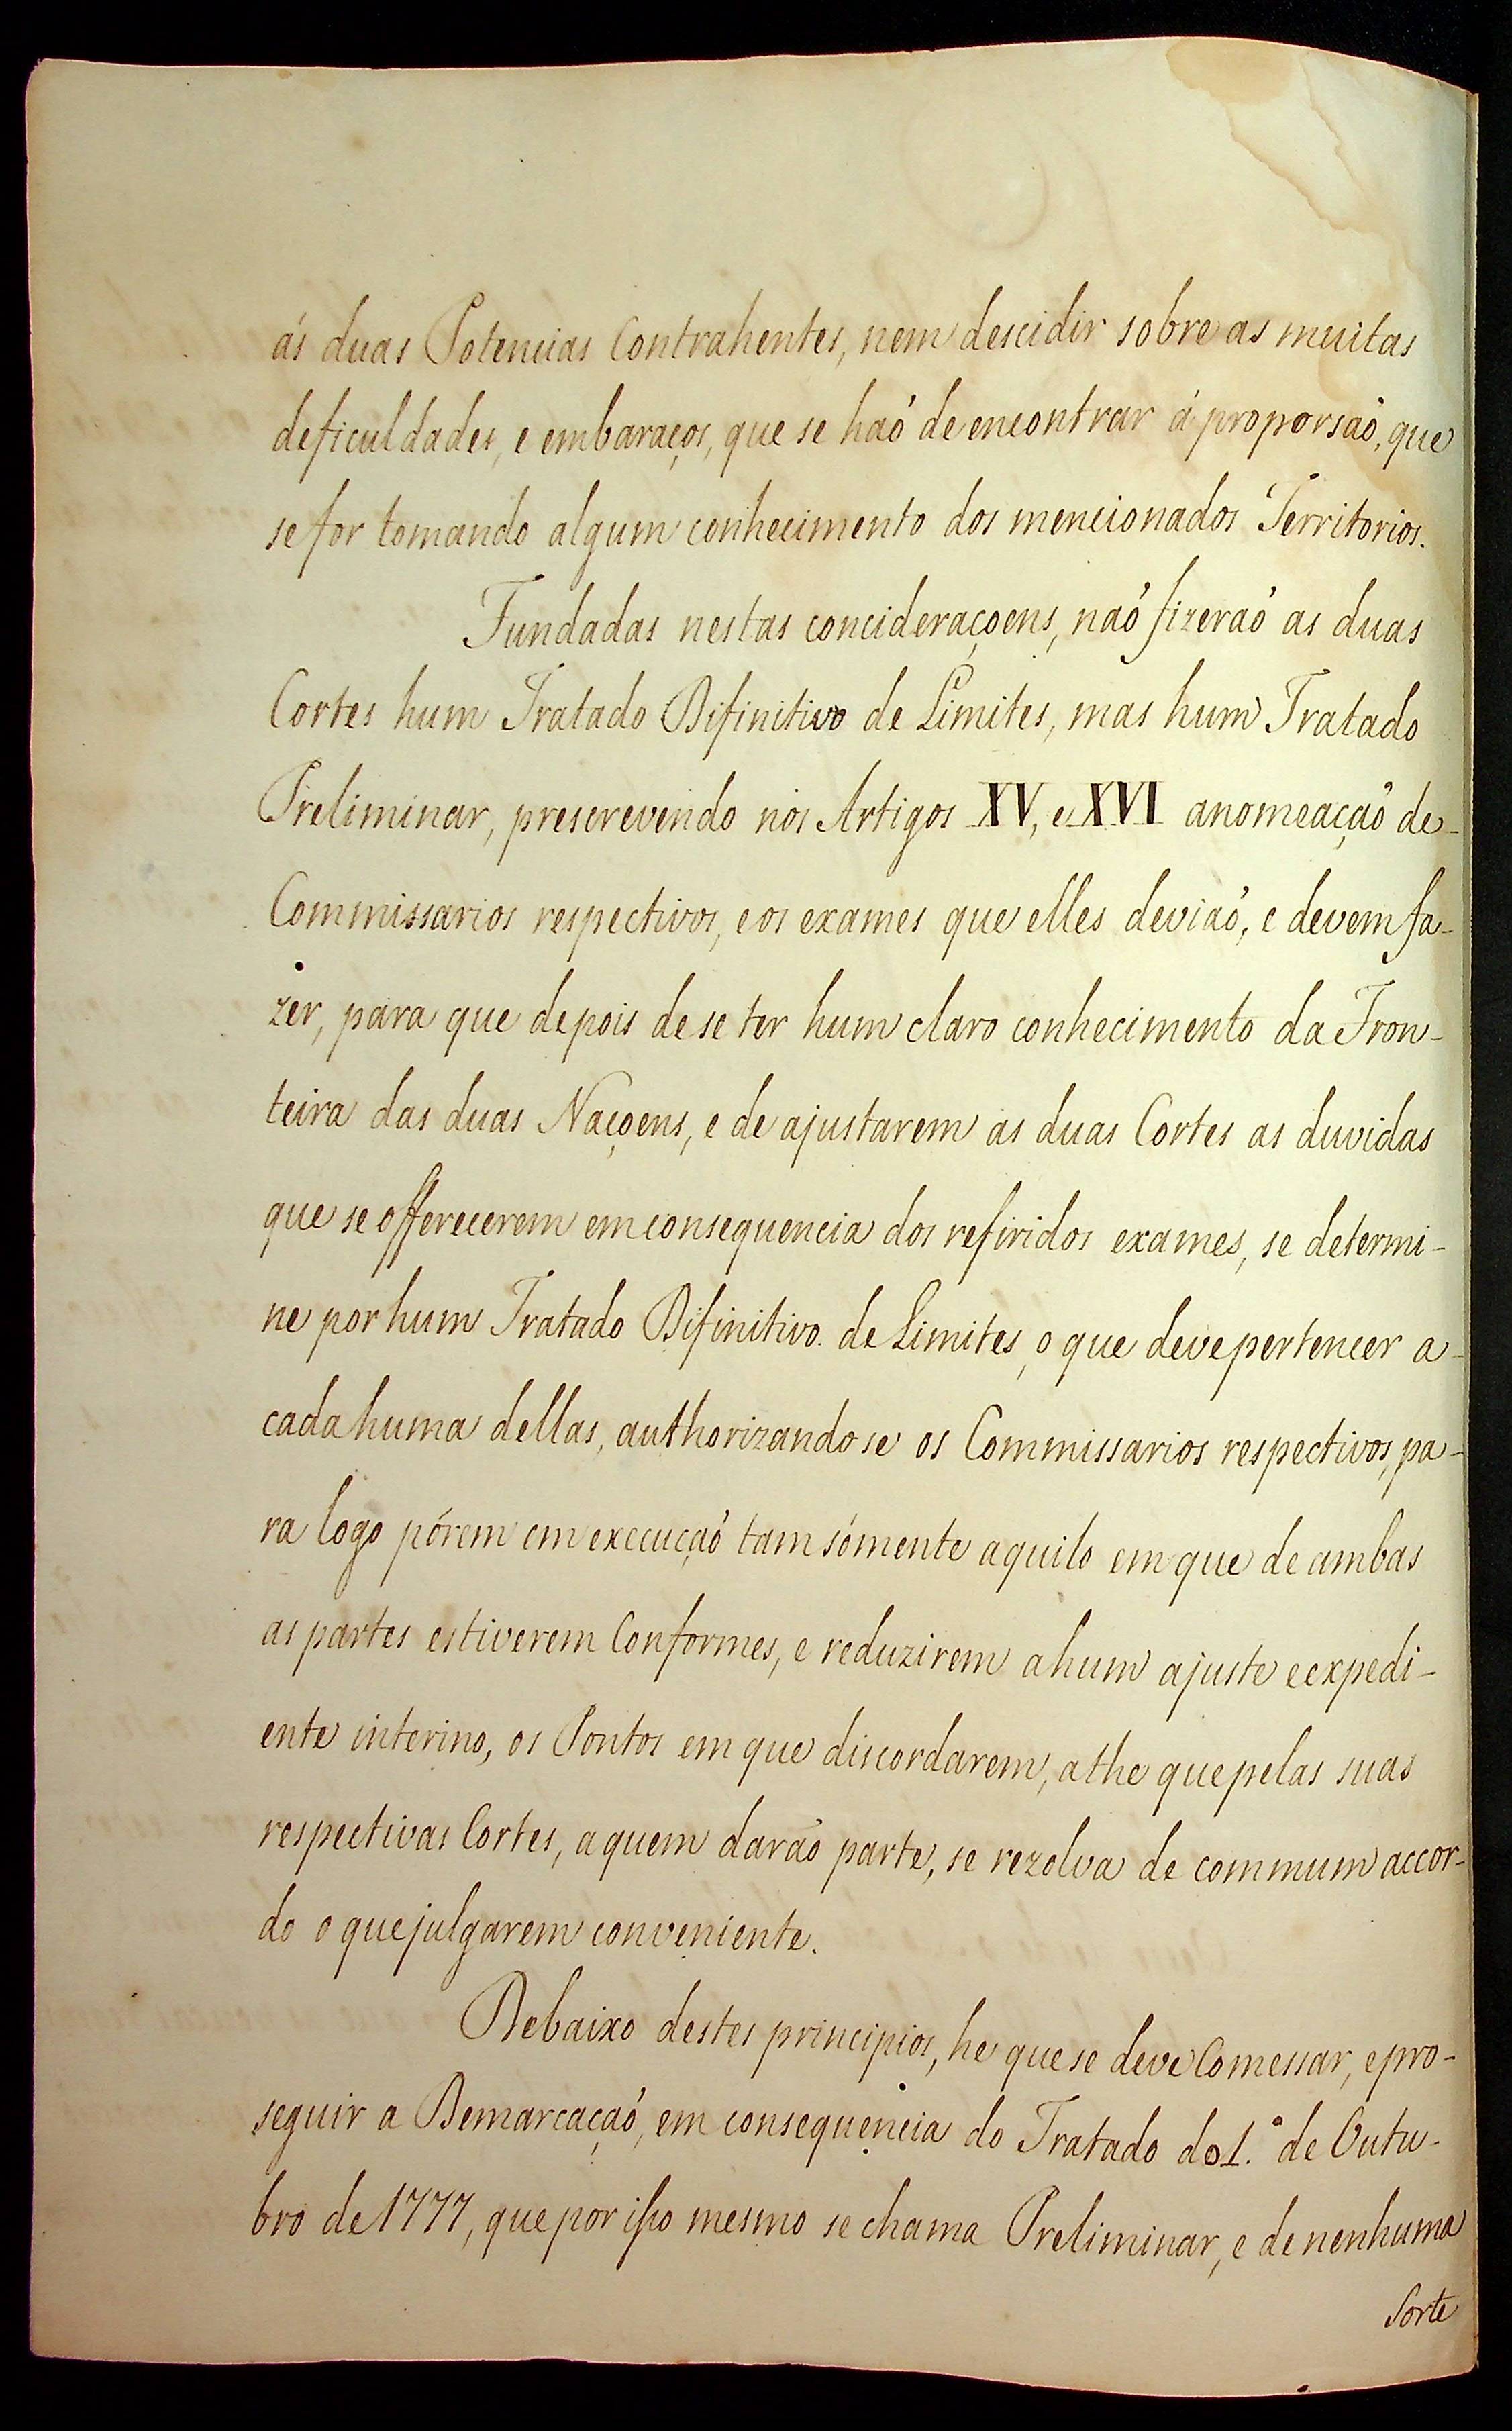 ás duas Potencias Contrahentes, nem descidir sobre as muitas
deficuldades, e embaraços, que se haó de encontrar á proporsaó, que
se for tomando algum conhecimento dos mencionados Territorios.
Fundadas nestas concideraçoens, naó fizeraó as duas
Cortes hum Tratado Difinitivo de Limites, mas hum Tratado
Preliminar, prescrevendo nos Artigos XV, e XVI a nomeaçaó de
Commissarios respectivos, e os exames que elles deviaó, e devem fa-
zer, para que depois de se ter hum claro conhecimento da Fron-
teira das duas Naçoens, e de ajustarem as duas Cortes as duvidas
que se offerecerem em consequencia dos refiridos exames, se determi-
ne por hum Tratado Difinitivo de Limites, o que deve pertencer a
cada huma dellas, authorizandose os Commissarios respectivos, pa-
ra logo pórem em execuçaó tam sómente aquilo em que de ambas
as partes estiverem Conformes, e reduzirem a hum ajuste e expedi-
ente interino, os Pontos em que discordarem, athe que pelas suas
respectivas Cortes, a quem darão parte, se rezolva de commum accor-
do o que julgarem conveniente.
Debaixo destes principios, he que se deve Comessar, e pro-
seguir a Demarcaçaó, em consequencia do Tratado do 1.º de Outu-
bro de 1777, que por iſso mesmo se chama Preliminar, e de nenhuma
Sorte